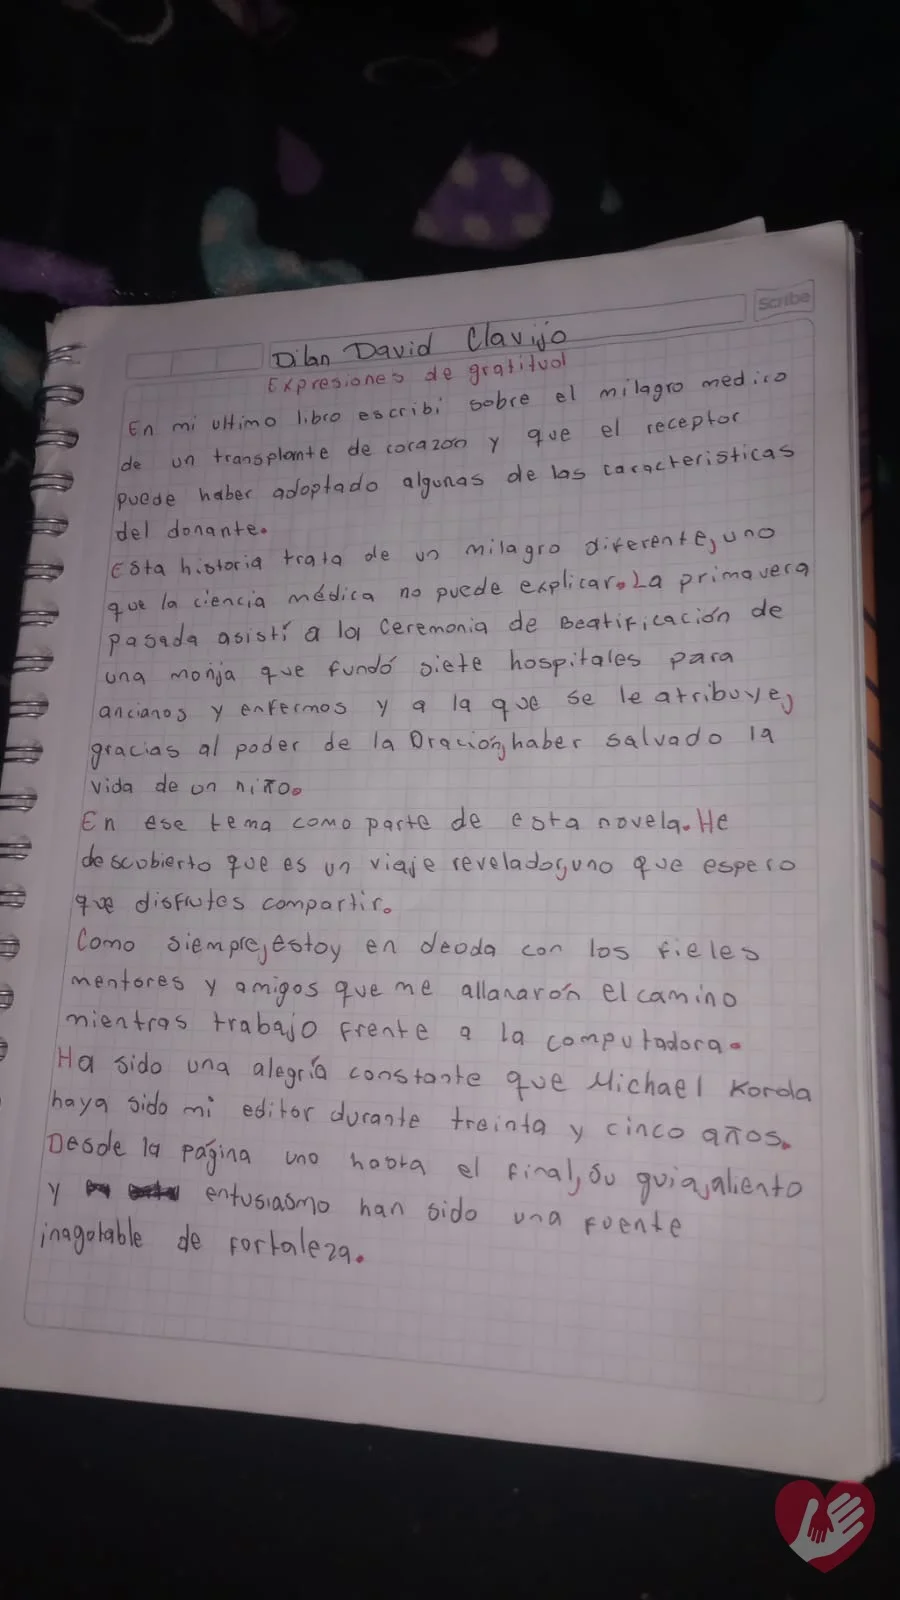 Scribe
Dilan David Clavijo
Expresiones de gratitud
En mi ultimo libro escribí sobre el milagro medico
de un transplante de corazon y que el receptor
puede haber adoptado algunas de las caracteristicas
del donante.
Esta historia trata de un milagro diferente, uno
que la ciencia médica no puede explicar. La primavera
pasada asistí a la ceremonia de Beatificación de
una monja que fundó siete hospitales para
ancianos y enfermos y a la que se le atribuye,
gracias al poder de la Oración, haber salvado la
vida de un niño.
En ese tema como parte de esta novela. He
descubierto que es un viaje revelador, uno que espero
que disfrutes compartir.
Como siempre, estoy en deuda con los fieles
mentores y amigos que me allanarón el camino
mientras trabajo frente a la computadora.
Ha sido una alegría constante que Michael Korda
haya sido mi editor durante treinta y cinco años.
Desde la página uno hasta el final, su guia, aliento
y entusiasmo han sido una fuente
inagotable de fortaleza.